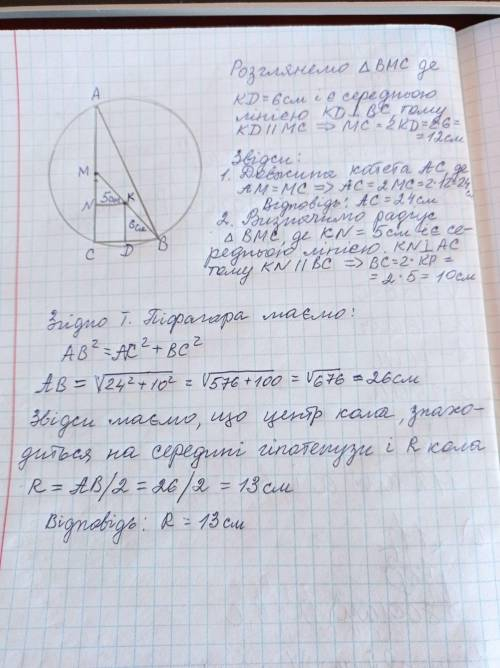 Розглянемо Δ BMC де
KD=6см і є середньою
лінією KD⊥BC, тому
KD∥MC ⇒ MC=2KD=2·6=
=12см
Звідси:
1. Довжина катета AC, де
AM=MC ⇒ AC=2MC=2·12=24
Відповідь: AC=24см
2. Визначимо радіус
Δ BMC, де KN=5см і є се-
редньою лінією. KN⊥AC
тому KN∥BC ⇒ BC=2·KP=
=2·5=10см
A
M
N
5см
K
6см
C
D
B
Згідно Т. Піфагора маємо:
AB²=AC²+BC²
AB = √24²+10² = √576+100 = √676 = 26см
Звідси маємо, що центр кола, знахо-
диться на середині гіпотенузи і R кола
R = AB/2 = 26/2 = 13см
Відповідь: R = 13см